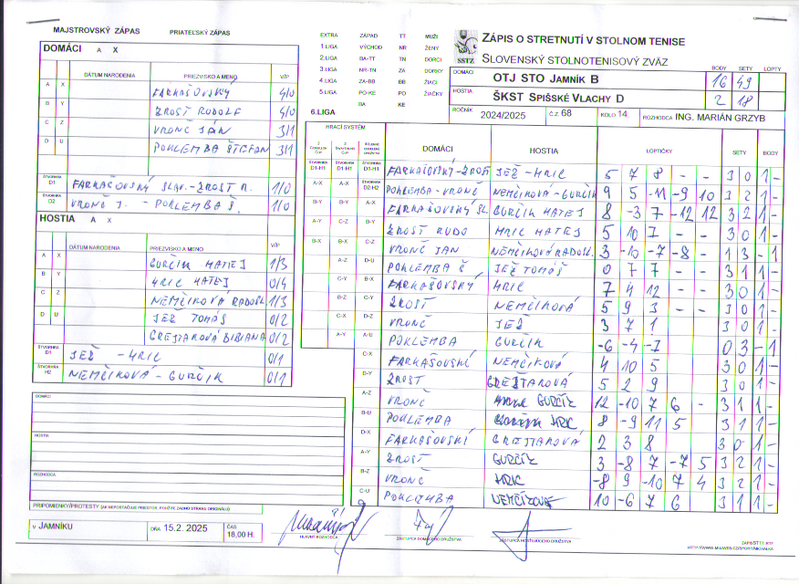 MAJSTROVSKÝ ZÁPAS PRIATEĽSKÝ ZÁPAS
DOMÁCI A X
DÁTUM NARODENIA PRIEZVISKO A MENO V/P
A X FARKAŠOVSKÝ 4/0
B Y ZROSŤ RUDOLF 4/0
C Z VRONČ JÁN 3/1
D U POKLEMBA ŠTEFAN 3/1
ŠTVORHRA D1 FARKAŠOVSKÝ SLAV.-ZROSŤ R. 1/0
ŠTVORHRA D2 VRONČ J. - POKLEMBA Š. 1/0
HOSTIA A X
DÁTUM NARODENIA PRIEZVISKO A MENO V/P
A X GURČÍK MATEJ 1/3
B Y HRIC MATEJ 0/4
C Z NEMČÍKOVÁ RADOSL. 1/3
D U JEŽ TOMÁŠ 0/2
GREJTAROVÁ BIBIANA 0/2
JEŽ - HRIC 0/1
NEMČÍKOVÁ - GURČÍK 0/1
DOMÁCI
HOSTIA
ROZHODCA
V JAMNÍKU DŇA 15.2. 2025 ČAS 18,00 H.
EXTRA ZÁPAD TT MUŽI
1.LIGA VÝCHOD NR ŽENY
2.LIGA BA-TT TN DORCI
3.LIGA NR-TN ZA DORKY
4.LIGA ZA-BB BB ŽIACI
5.LIGA PO-KE PO ŽIAČKY
BA KE
6.LIGA
SSTZ
ZÁPIS O STRETNUTÍ V STOLNOM TENISE
SLOVENSKÝ STOLNOTENISOVÝ ZVÄZ
BODY SETY LOPTY
DOMÁCI OTJ STO JAMNÍK B 16 49
HOSTIA ŠKST SPIŠSKÉ VLACHY D 2 18
ROČNÍK 2024/2025 Č.Z. 68 KOLO 14 ROZHODCA ING. MARIÁN GRZYB
HRACÍ SYSTÉM
DOMÁCI HOSTIA LOPTIČKY SETY BODY
FARKAŠOVSKÝ-ZROSŤ JEŽ-HRIC 5 7 8 - - 3 0 1 -
POKLEMBA-VRONČ NEMČÍKOVÁ-GURČÍK 9 5 -11 -9 10 3 2 1 -
FARKAŠOVSKÝ SL. GURČÍK MATEJ 8 -3 7 -12 12 3 2 1 -
ZROSŤ RUDO HRIC MATEJ 5 10 7 - - 3 0 1 -
VRONČ JÁN NEMČÍKOVÁ RADOSL. 3 -10 -7 -8 - 1 3 - 1
POKLEMBA Š JEŽ TOMÁŠ 0 7 7 - - 3 1 1 -
FARKAŠOVSKÝ HRIC 7 4 12 - - 3 0 1 -
ZROSŤ NEMČÍKOVÁ 5 9 3 - - 3 0 1 -
VRONČ JEŽ 3 7 1 3 0 1 -
POKLEMBA GURČÍK -6 -4 -7 0 3 - 1
FARKAŠOVSKÍ NEMČÍKOVÁ 4 10 5 3 0 1 -
ZROSŤ GREJTAROVÁ 5 2 9 3 0 1 -
VRONČ GURČÍK 12 -10 7 6 - 3 1 1 -
POKLEMBA HRIC 8 -9 11 5 3 1 1 -
FARKAŠOVSKÍ GREJTAROVÁ 2 3 8 3 0 1 -
ZROSŤ GURČÍK 3 -8 7 -7 5 3 2 1 -
VRONČ HRIC -8 9 -10 7 4 3 2 1 -
POKLEMBA NEMČÍKOVÁ 10 -6 7 6 3 1 1 -